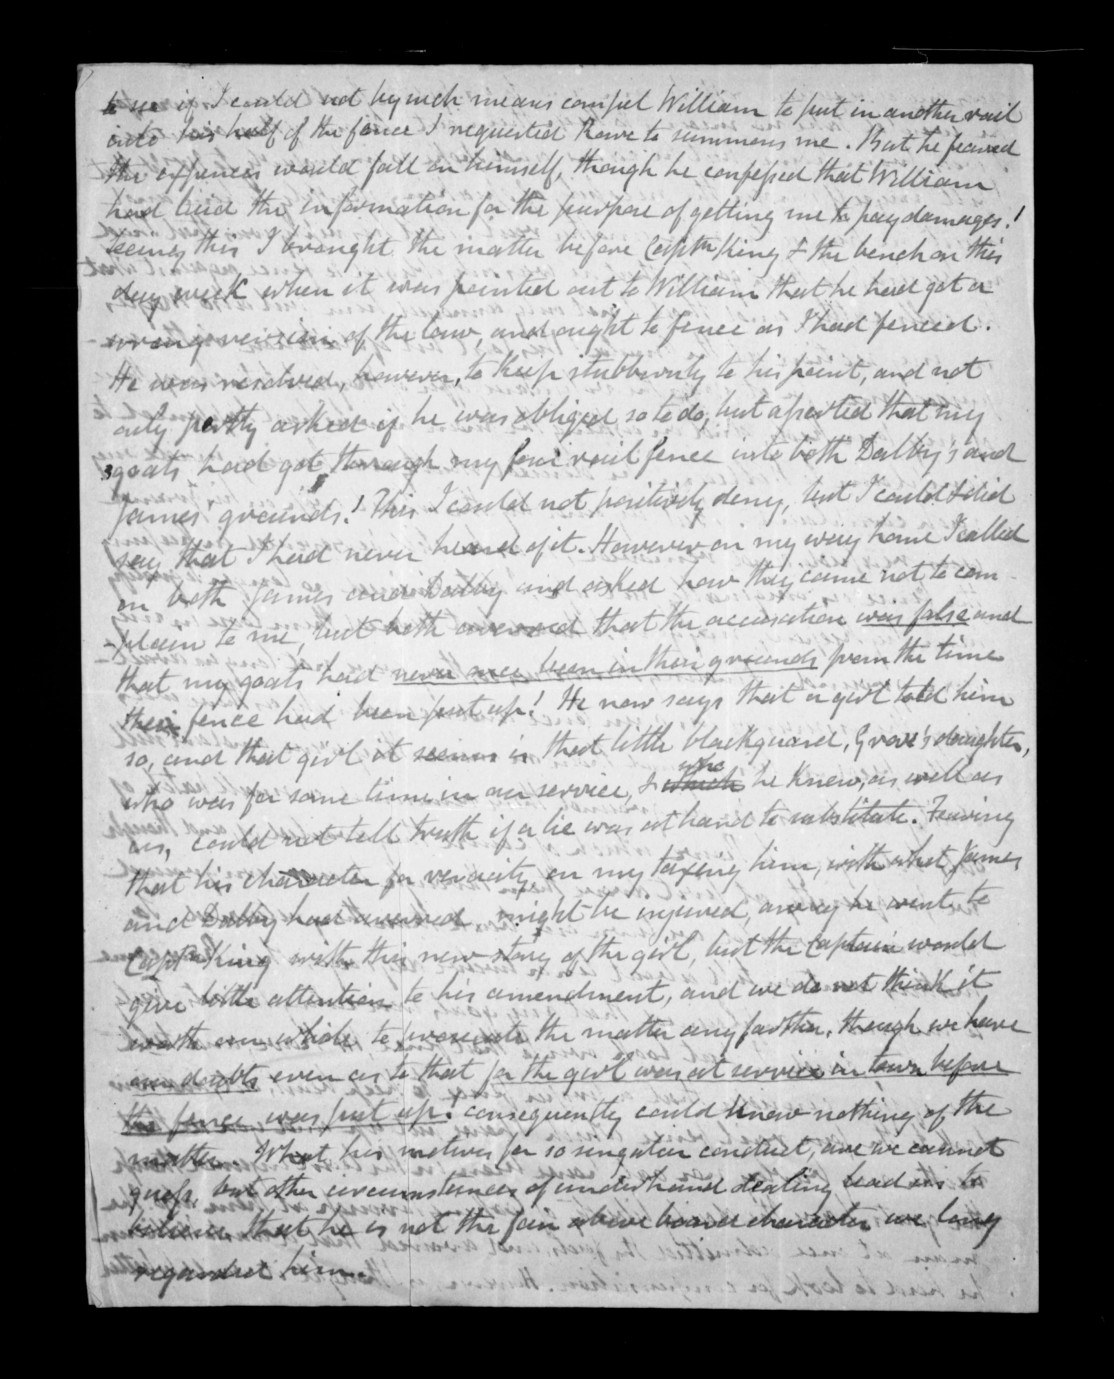 to us if I could not by such means compel William to put in another rail
into his half of the fence I requested Rowe to summons me. But he feared
the expences would fall on himself, though he confessed that William
had laid the information for the purpose of getting me to pay damages!
Seeing this I brought the matter before Captn King & the bench on this
day week when it was pointed out to William that he had got a
wrong version of the law, and ought to fence as I had fenced.
He was resolved, however, to keep stubbornly to his point, and not
only pertly asked if he was obliged so to do, but asserted that my
goats had got through my four rail fence into both Dalby's and
James' grounds! This I could not positively deny, but I could & did
say that I had never heard of it. However on my way home I called
on both James and Dalby and asked how they came not to com-
-plain to me, but both averred that the accusation was false and
that my goats had never once been in their grounds from the time
their fence had been put up! He now says that a girl told him
so, and that girl it seems is that little blackguard, Grove's daughter,
who was for some time in our service, & which who he knew, as well as
us, could not tell truth if a lie was at hand to substitute. Fearing
that his character for veracity, on my taxing him, with what James
and Dalby had averred, might be injured, away he went to
Captn King with this new story of the girl, but the Captain would
give little attention to his amendment, and we do not think it
worth our while to the matter any farther, though we have
our doubts even as to that for the girl was at service in town before
the fence was put up! consequently could know nothing of the
matter. What his motives for so singular conduct, are we cannot
guess, but other circumstances of underhand dealing lead us to
believe that he is not the fair above board character we long
regarded him.